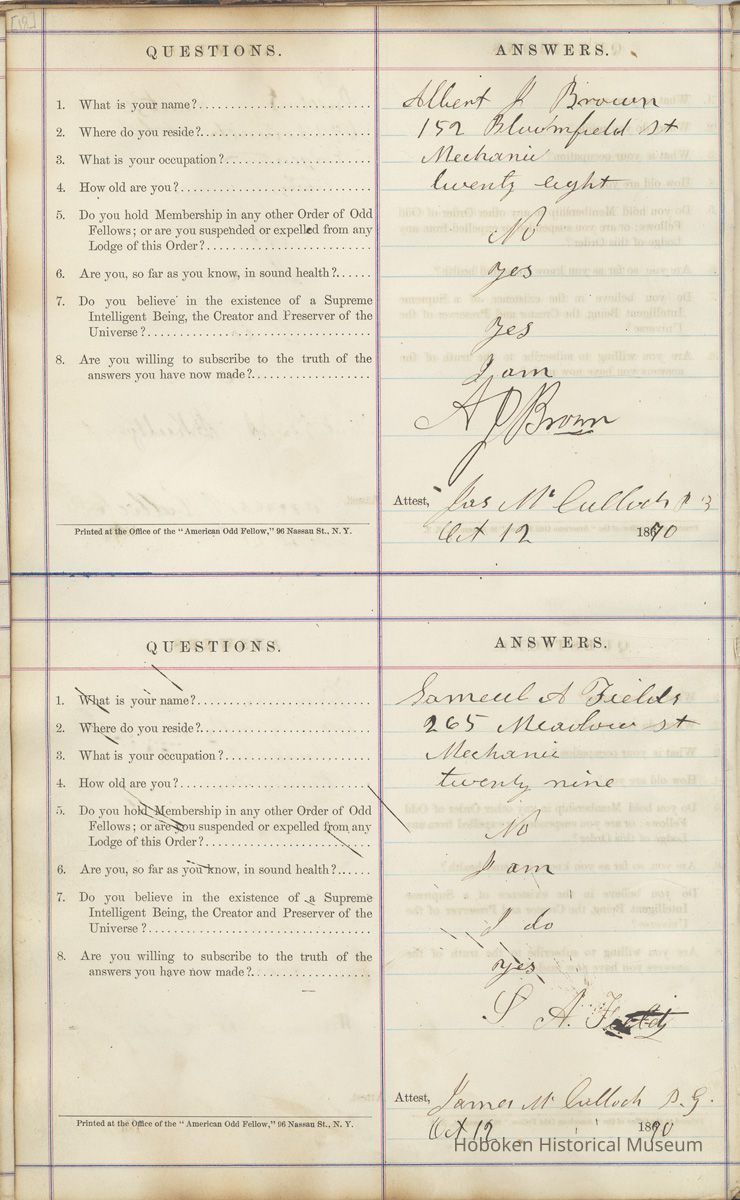 [18]
QUESTIONS.
ANSWERS.
1. What is your name?
Albert J Brown
2. Where do you reside?
152 Bloomfield St
3. What is your occupation?
Mechanic
4. How old are you?
twenty eight
5. Do you hold Membership in any other Order of Odd
Fellows; or are you suspended or expelled from any
Lodge of this Order?
No
6. Are you, so far as you know, in sound health?
yes
7. Do you believe in the existence of a Supreme
Intelligent Being, the Creator and Preserver of the
Universe?
yes
8. Are you willing to subscribe to the truth of the
answers you have now made?
I am
A J Brown
Attest, Jas Mc Culloch
Oct 12 1870
Printed at the Office of the "American Odd Fellow," 96 Nassau St., N. Y.
QUESTIONS.
ANSWERS.
1. What is your name?
Sameul A Fields
2. Where do you reside?
265 Meadow st
3. What is your occupation?
Mechanic
4. How old are you?
twenty nine
5. Do you hold Membership in any other Order of Odd
Fellows; or are you suspended or expelled from any
Lodge of this Order?
No
6. Are you, so far as you know, in sound health?
I am
7. Do you believe in the existence of a Supreme
Intelligent Being, the Creator and Preserver of the
Universe?
I do
8. Are you willing to subscribe to the truth of the
answers you have now made?
yes
S A. Fields
Attest, James Mc Culloch N. G.
Oct 12 1870
Printed at the Office of the "American Odd Fellow," 96 Nassau St., N. Y.
Hoboken Historical Museum